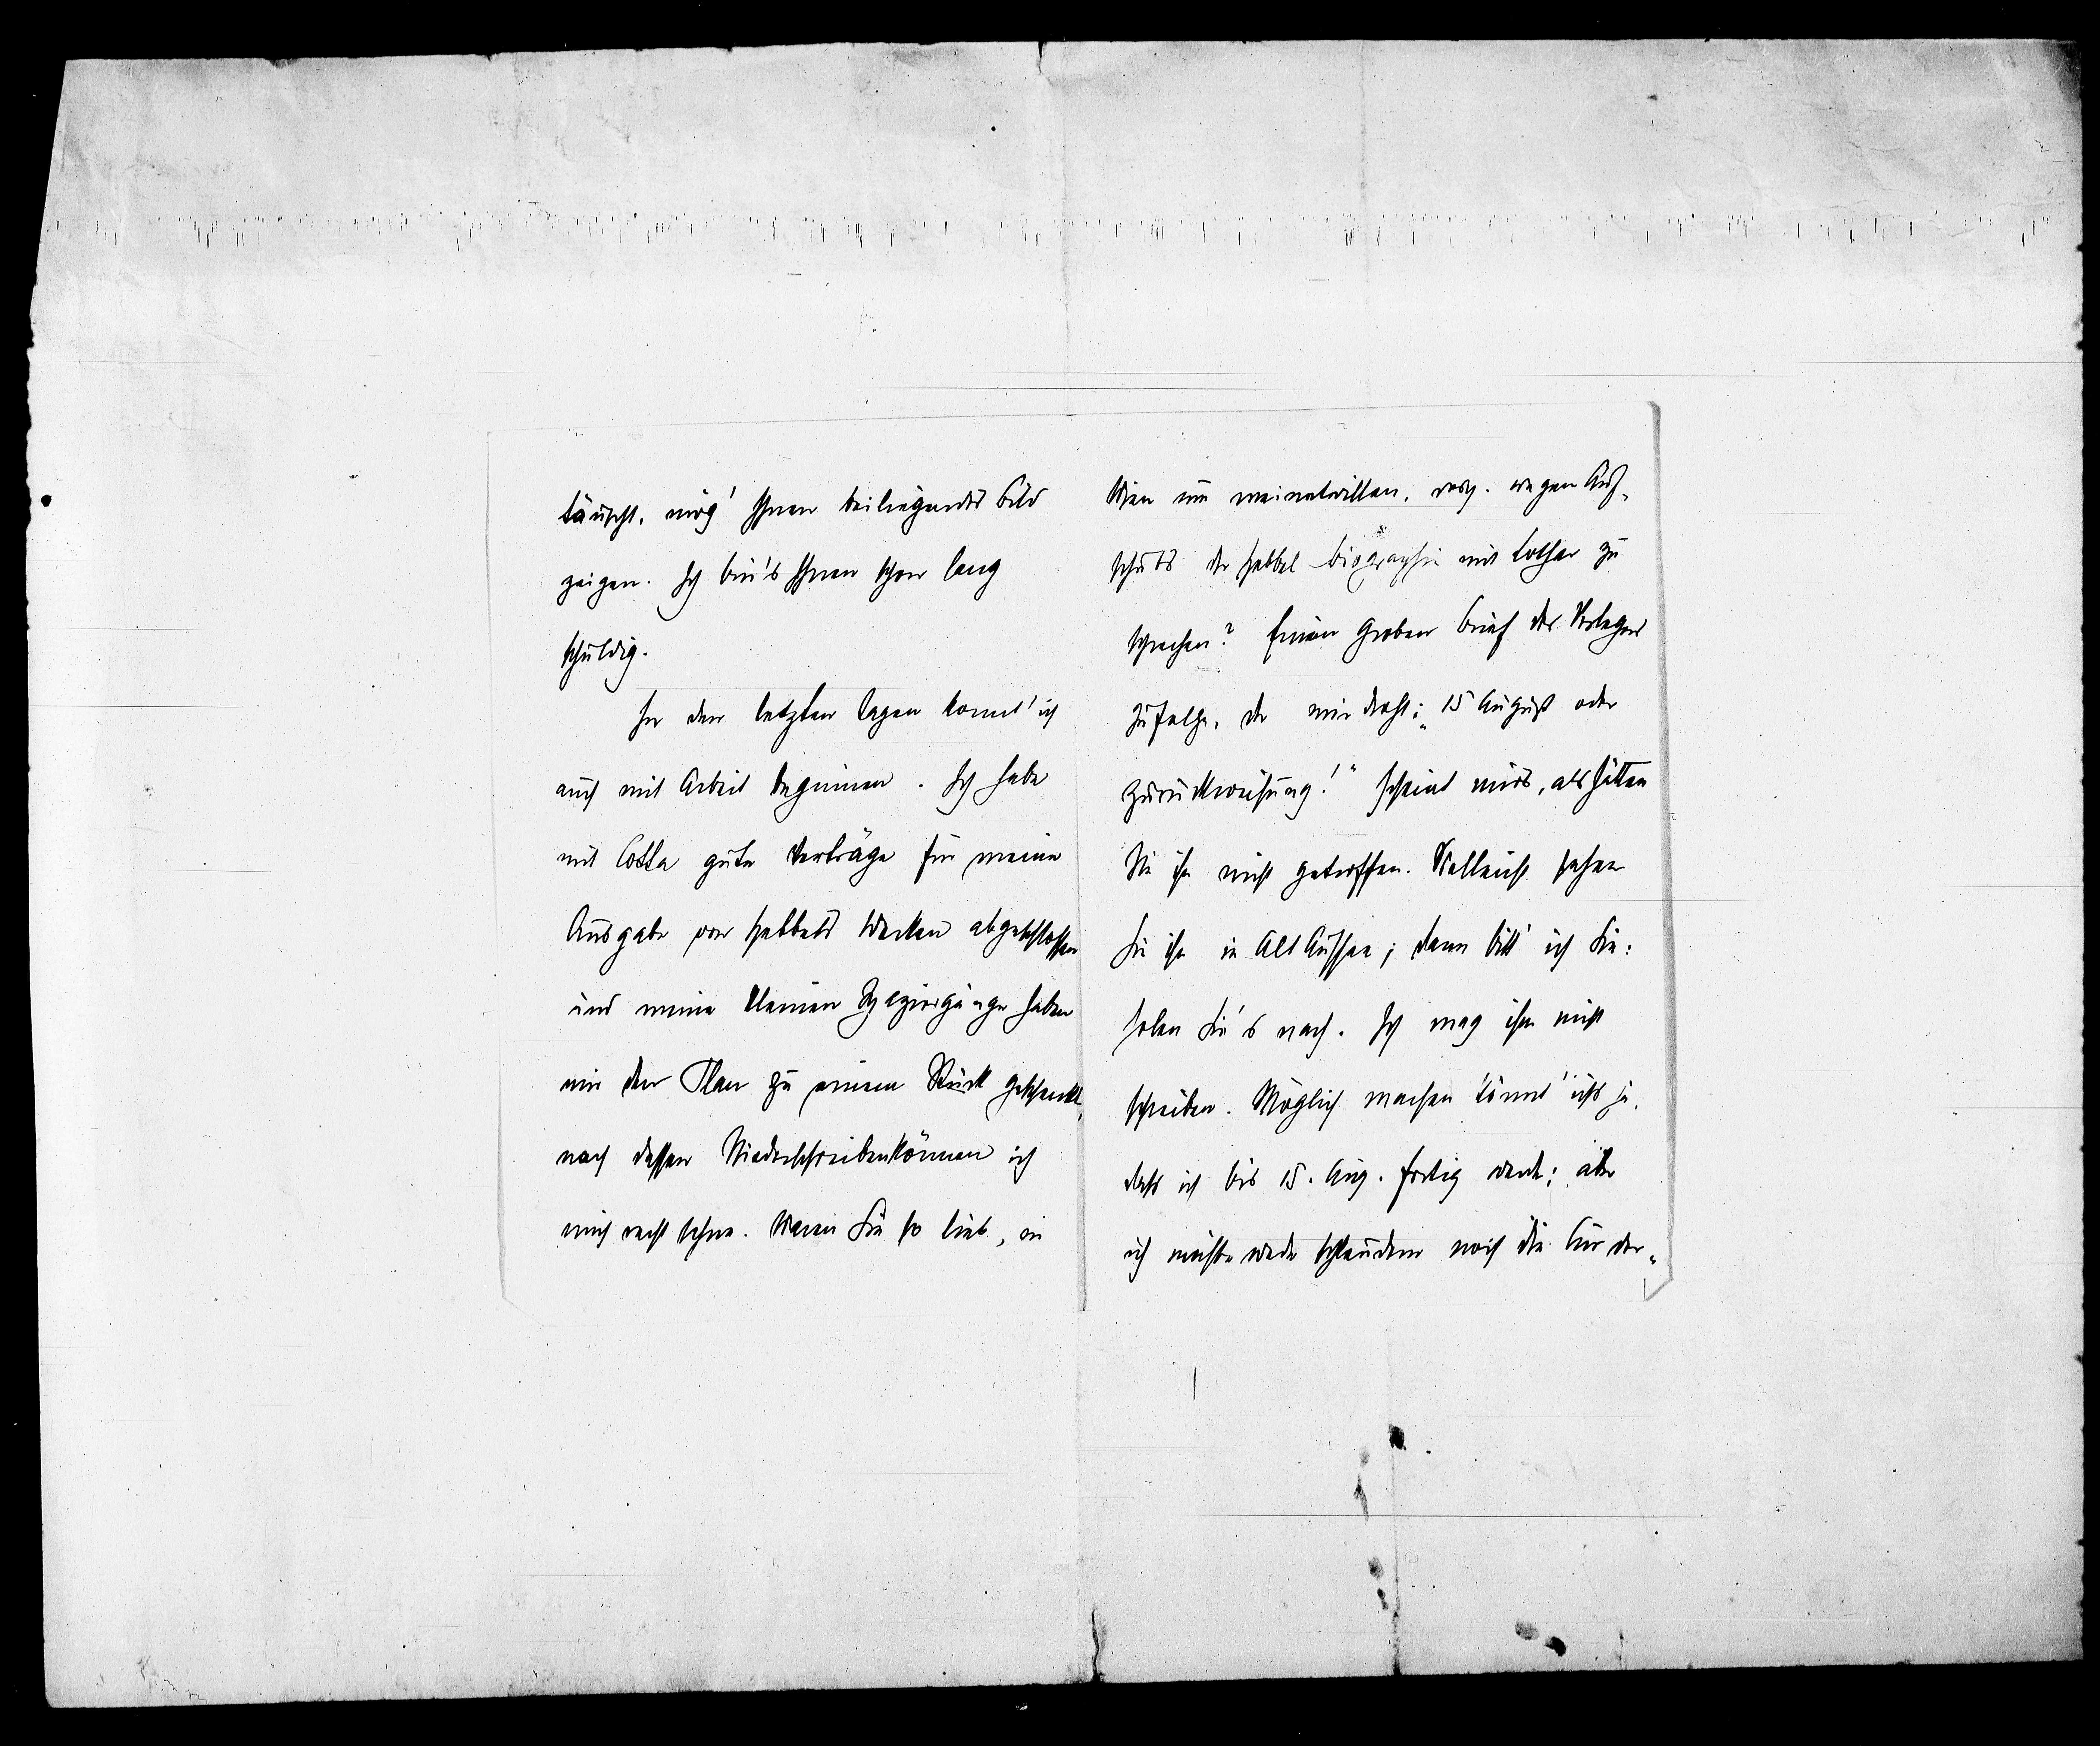 täuscht, mög' Ihnen beiliegendes Bild
zeigen. Ich bin's Ihnen schon lang
schuldig.
In den letzten Tagen konnt' ich
auch mit Arbeit beginnen. Ich habe
mit Cotta gute Verträge für meine
Ausgabe von Hebbels Werken abgeschlossen
und meine kleinen Spaziergänge haben
mir den Plan zu einem Stück geschenkt,
nach dessen Niederschreibenkönnen ich
mich recht sehne. Waren Sie so lieb, in
Wien um meinetwillen, resp. wegen Auf-
schubs der Hebbel Biographie mit Lothar zu
sprechen? Einem groben Brief des Verlegers
zufolge, der mir droht: „15 August oder
Zurückweisung!" scheint mirs, als hätten
Sie ihn nicht getroffen. Vielleicht sehen
Sie ihn in Alt Aussee; dann bitt' ich Sie:
holen Sie's nach. Ich mag ihm nicht
schreiben. Möglich machen könnt' ichs ja,
dass ich bis 15. Aug. fertig werde; aber
ich möchte weder schleudern noch die Cur der-